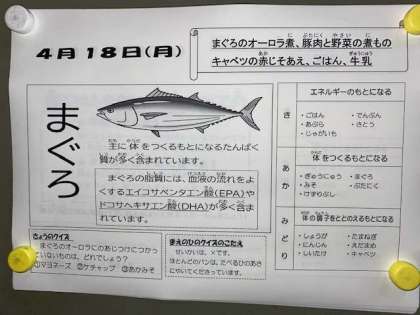 4月18日(月)
まぐろのオーロラ煮、豚肉と野菜の煮もの
キャベツの赤じそあえ、ごはん、牛乳
まぐろ
主に体をつくるもとになるたんぱく
質が多く含まれています。
まぐろの脂質には、血液の流れをよ
くするエイコサペンタエン酸(EPA)や
ドコサヘキサエン酸(DHA)が多く含ま
れています。
きょうのクイズ
まぐろのオーロラにのあじつけにつかっ
ていないものは、どれでしょう?
①マヨネーズ ②ケチャップ ③あかみそ
まえのひのクイズのこたえ
せいかいは、×です。
ほとんどのパンは、たべるひのあさ
にやいてくださっています。
エネルギーのもとになる
き
・ごはん ・でんぷん
・あぶら ・さとう
・じゃがいも
体をつくるもとになる
あか
・ぎゅうにゅう ・まぐろ
・みそ ・ぶたにく
・けずりぶし
体の調子をととのえるもとになる
みどり
・しょうが ・たまねぎ
・にんじん ・えだまめ
・しいたけ ・キャベツ